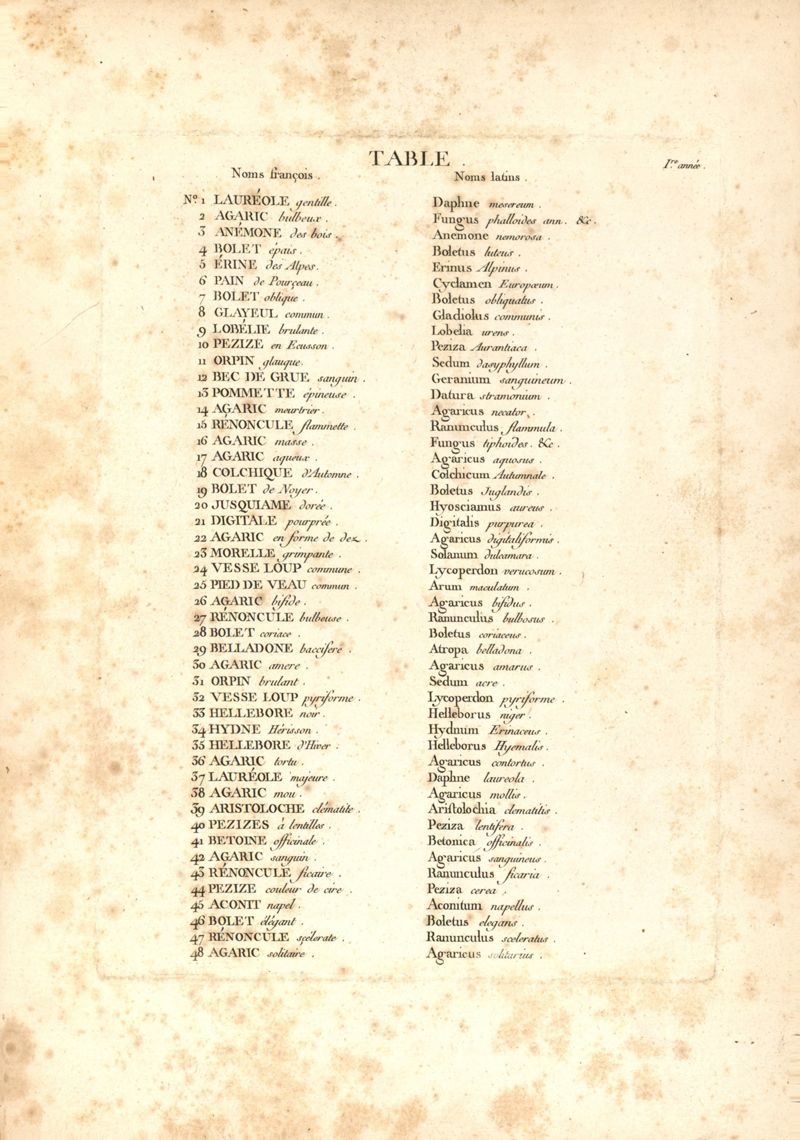 TABLE .
I.re année .
Noms françois . Noms latins .
Nº 1 LAURÉOLE gentille . Daphne mesereum .
2 AGARIC bulbeux . Fungus phalloides ann. &c .
3 ANÉMONE des bois . Anemone nemorosa .
4 BOLET épais . Boletus luteus .
5 ÉRINE des Alpes . Erinus Alpinus .
6 PAIN de Pourçeau . Cyclamen Europœum .
7 BOLET oblique . Boletus obliquatus .
8 GLAYEUL commun . Gladiolus communis .
9 LOBÉLIE brulante . Lobelia urens .
10 PEZIZE en Ecusson . Peziza Aurantiaca .
11 ORPIN glauque . Sedum dasyphyllum .
12 BEC DE GRUE sanguin . Geranium sanguineum .
13 POMMETTE épineuse . Datura stramonium .
14 AGARIC meurtrier . Agaricus necator .
15 RENONCULE flammette . Ranunculus flammula .
16 AGARIC masse . Fungus tiphoides . &c .
17 AGARIC aqueux . Agaricus aquosus .
18 COLCHIQUE d'Automne . Colchicum Autumnale .
19 BOLET de Noyer . Boletus Juglandis .
20 JUSQUIAME dorée . Hyosciamus aureus .
21 DIGITALE pourprée . Digitalis purpurea .
22 AGARIC en forme de dez . Agaricus digitaliformis .
23 MORELLE grimpante . Solanum dulcamara .
24 VESSE LOUP commune . Lycoperdon verucosum .
25 PIED DE VEAU commun . Arum maculatum .
26 AGARIC bifide . Agaricus bifidus .
27 RÉNONCULE bulbeuse . Ranunculus bulbosus .
28 BOLET coriace . Boletus coriaceus .
29 BELLADONE baccifere . Atropa belladona .
30 AGARIC amere . Agaricus amarus .
31 ORPIN brulant . Sedum acre .
32 VESSE LOUP pyriforme . Lycoperdon pyriforme .
33 HELLEBORE noir . Helleborus niger .
34 HYDNE Hérisson . Hydnum Erinaceus .
35 HELLEBORE d'Hiver . Helleborus Hyemalis .
36 AGARIC tortu . Agaricus contortus .
37 LAURÉOLE majeure . Daphne laureola .
38 AGARIC mou . Agaricus mollis .
39 ARISTOLOCHE clématite . Aristolochia clematilis .
40 PEZIZES à lentilles . Peziza lentifera .
41 BETOINE officinale . Betonica officinalis .
42 AGARIC sanguin . Agaricus sanguineus .
43 RÉNONCULE ficaire . Ranunculus ficaria .
44 PEZIZE couleur de cire . Peziza cerea .
45 ACONIT napel . Aconitum napellus .
46 BOLET élégant . Boletus elegans .
47 RÉNONCULE scélerate . Ranunculus sceleratus .
48 AGARIC solitaire . Agaricus solitarius .